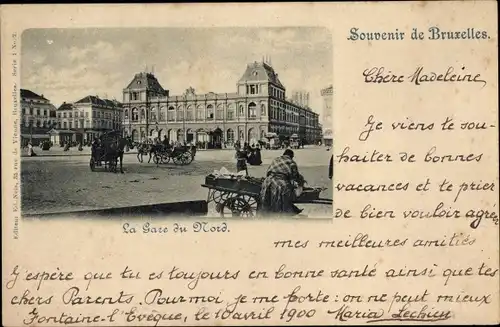 Souvenir de Bruxelles.
Chère Madeleine
Je viens te sou-
haiter de bonnes
vacances et te prier
de bien vouloir agréer
mes meilleures amitiés
La Gare du Nord.
J'espère que tu es toujours en bonne santé ainsi que tes
chers Parents. Pour moi je me porte: on ne peut mieux
Fontaine-l'Evêque, le 10 avril 1900 Maria
Editeur 23, rue de Vienne, Bruxelles. Serie 1 No